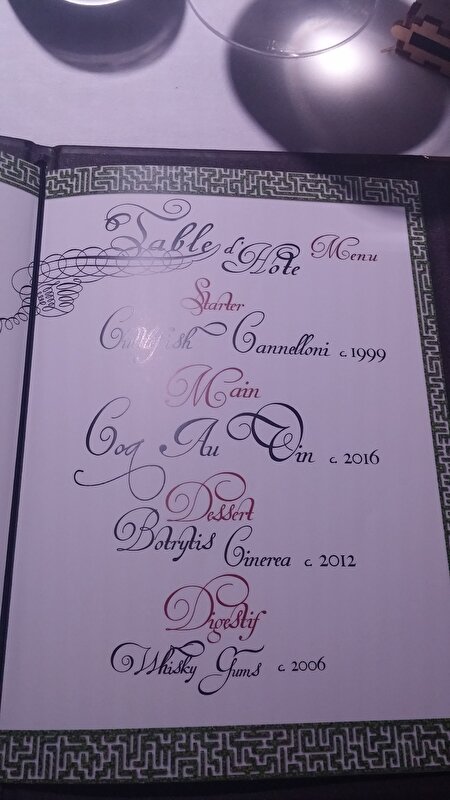 Table d'Hote Menu
Starter
Cuttlefish Cannelloni c.1999
Main
Coq Au Vin c. 2016
Dessert
Botrytis Cinerea c. 2012
Digestif
Whisky Gums c. 2006